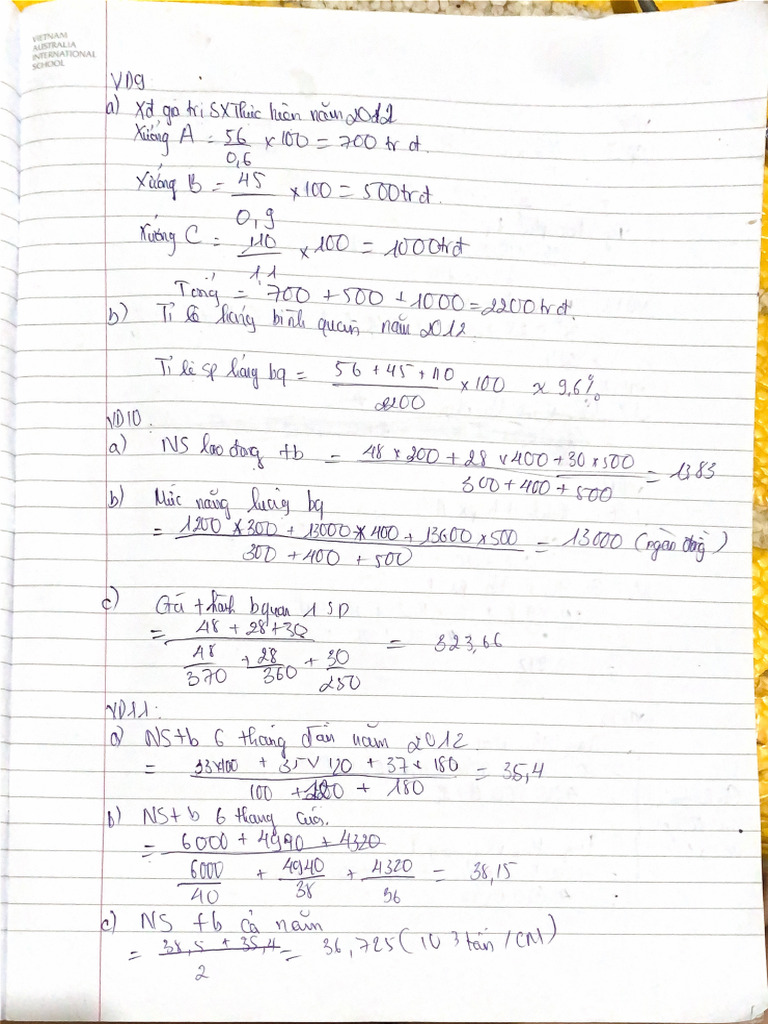 VIETNAM
AUSTRALIA
INTERNATIONAL
SCHOOL
VD9
a) Xđ giá trị SX Thực hiện năm 2012
Xưởng A = 56/0,6 × 100 = 700 tr đ.
Xưởng B = 45/0,9 × 100 = 500 trđ.
Xưởng C = 110/11 × 100 = 1000 trđ
Tổng = 700 + 500 + 1000 = 2200 trđ.
b) Tỉ lệ hỏng bình quân năm 2012
Tỉ lệ sp hỏng bq = 56 + 45 + 110/2200 × 100 × 9,6%
VD10:
a) NS lao động tb = 48 × 200 + 28 × 400 + 30 × 500/300 + 400 + 500 = 1383
b) Mức năng lương bq
= 1200 × 300 + 13000 × 400 + 13600 × 500/300 + 400 + 500 = 13000 (ngàn đồng)
c) Giá thành bquan 1 SP
= 48 + 28 + 30/48/370 + 28/360 + 30/250 = 323,66
VD11:
a) NS tb 6 tháng đầu năm 2012
= 33×100 + 35×120 + 37×180/100 + 120 + 180 = 35,4
b) NS tb 6 tháng cuối.
= 6000 + 4990 + 4320/6000/40 + 4940/38 + 4320/36 = 38,15
c) NS tb cả năm
= 38,5 + 35,4/2 = 36,725 (10 3 tấn /CN)